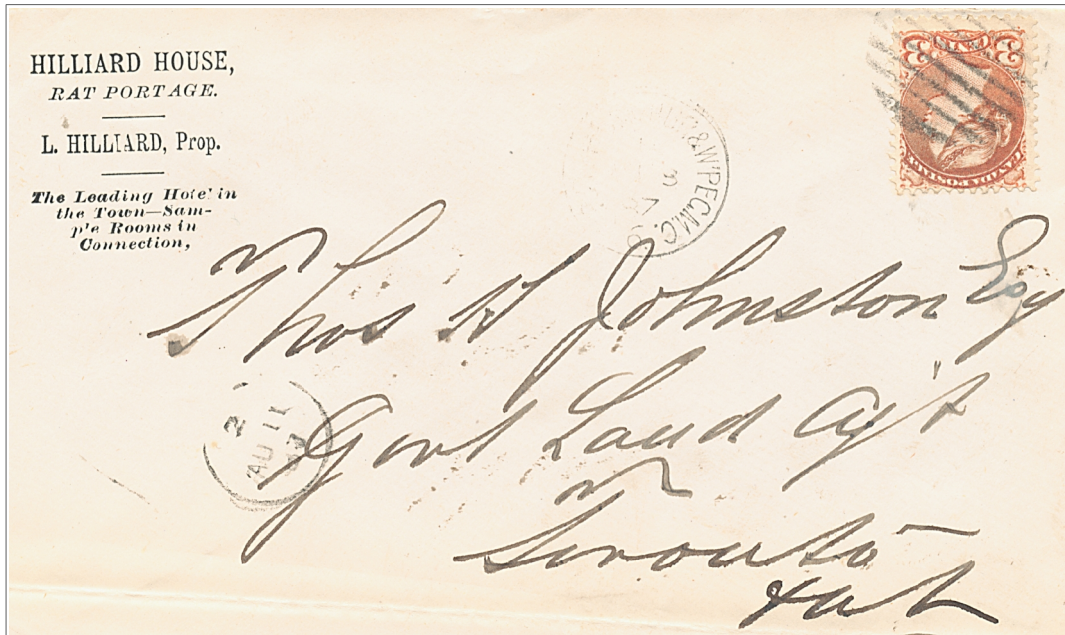 HILLIARD HOUSE,
RAT PORTAGE.
L. HILLIARD, Prop.
The Leading Hotel in
the Town—Sam-
p'e Rooms in
Connection,
& W'PEG.M.C.
3
CANADA POSTAGE
3 CENTS 3
Thos H Johnston Esq
Govt Land Ag't
Toronto
Ont
2
AU 11